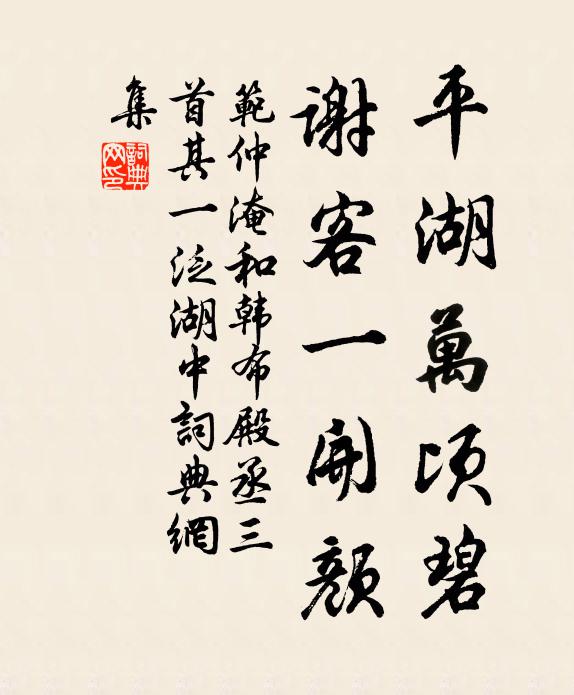 平湖萬頃碧
謝客一開顏
範仲淹和韩布殿丞三
首其一泛湖中詞典網
集
詞典
网印